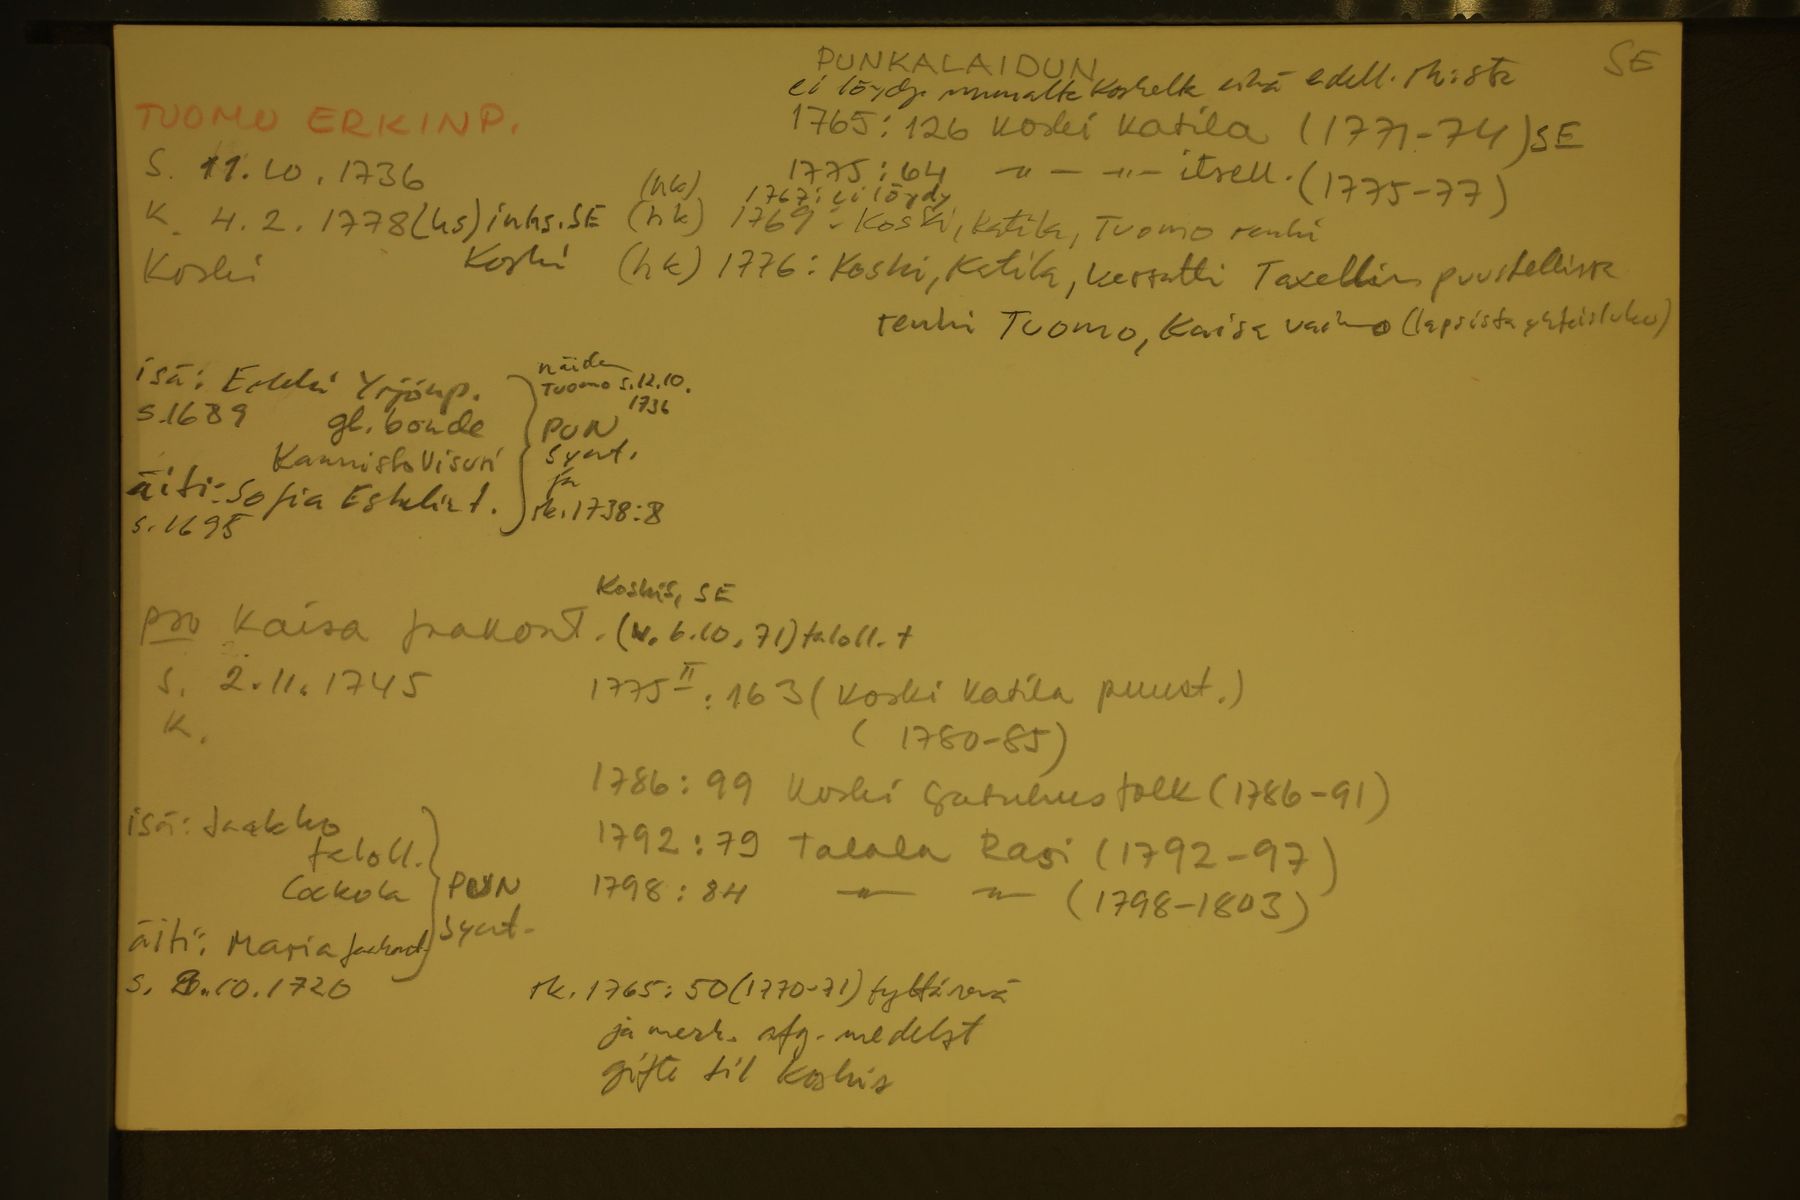 PUNKALAIDUN
SE
ei löydy muualta Koskelta eikä edell. rk:sta
TUOMO ERKINP.
1765: 126 Koski Katila (1771-74) SE
S. 11.10.1736
1775: 64 -"- -"- itsell. (1775-77)
(hk) 1767: ei löydy
K. 4.2.1778 (hs) inhs. SE
(hk) 1769: Koski, Katila, Tuomo renki
Koski
Koski
(hk) 1776: Koski, Katila, kersatti Taxellin puustellissa
renki Tuomo, Kaisa vaimo (lapsista yhteisluku)
isä: Erkki Yrjönp.
s. 1689
gl. bonde
Kannisto Visuri
äiti: Sofia Eskelint.
s. 1695
näiden
Tuomo s. 12.10.
1736
PUN
synt.
ja
rk. 1738:8
Koskis, SE
pso Kaisa Jaakont. (v. 6.10.71) taloll. t
s. 2.11.1745
K.
1775 II: 163 (Koski Katila puust.)
(1780-85)
1786: 99 Koski gatuhusfolk (1786-91)
isä: Jaakko
taloll.
1792: 79 Talala Rasi (1792-97)
PUN
synt.
1798: 84 -"- -"- (1798-1803)
äiti: Maria Jaakont.
s. 10.1720
rk. 1765: 50 (1770-71) tyttärenä
ja merk. afg. medelst
gifte til Koskis